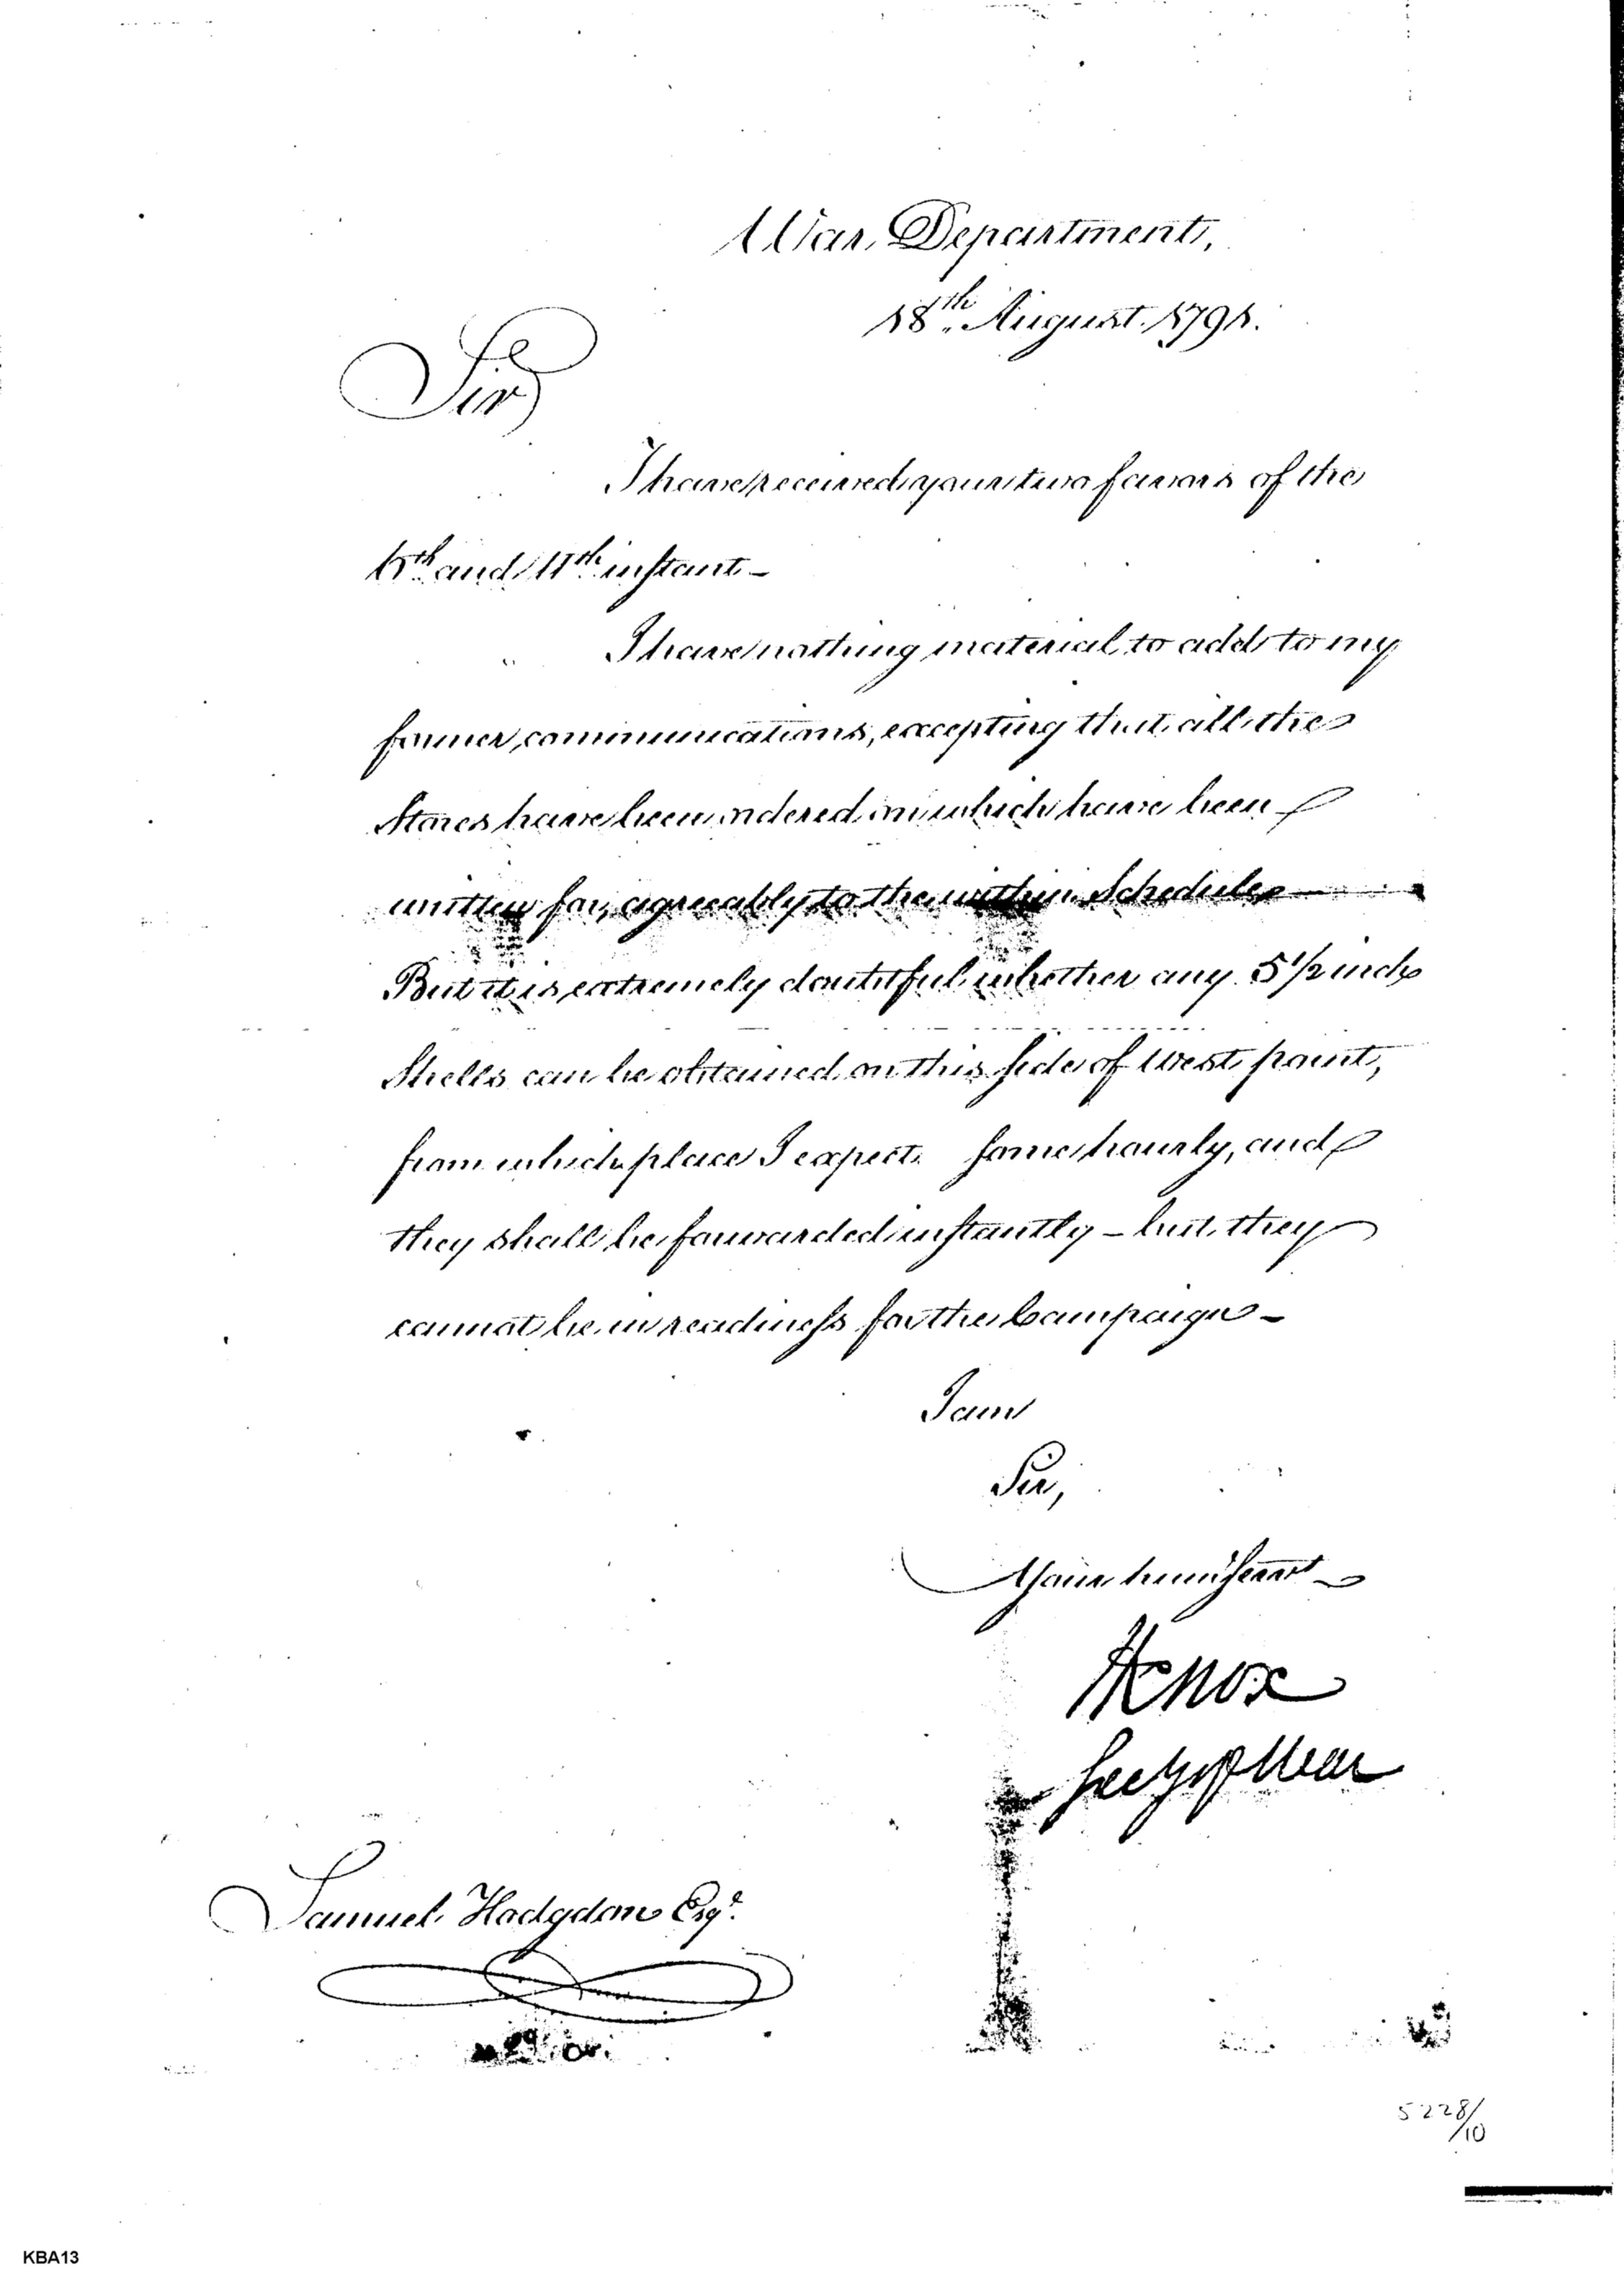 War Department,
18th August 1791.
Sir
I have received your two favors of the
and 11th instant –
I have nothing material to add to my
former communications, excepting that all the
Stores have been ordered on which have been
written for, agreeably to the within Schedule —
But it is extremely doubtful whether any 5 1/2 inch
Shells can be obtained on this side of West point,
from which place I expect some hourly, and
they shall be forwarded instantly – but they
cannot be in readiness for the Campaign –
I am
Sir,
Your hum Servt
HKnox
Secy of War
Samuel Hodgdon Esqr.
5228/10
KBA13